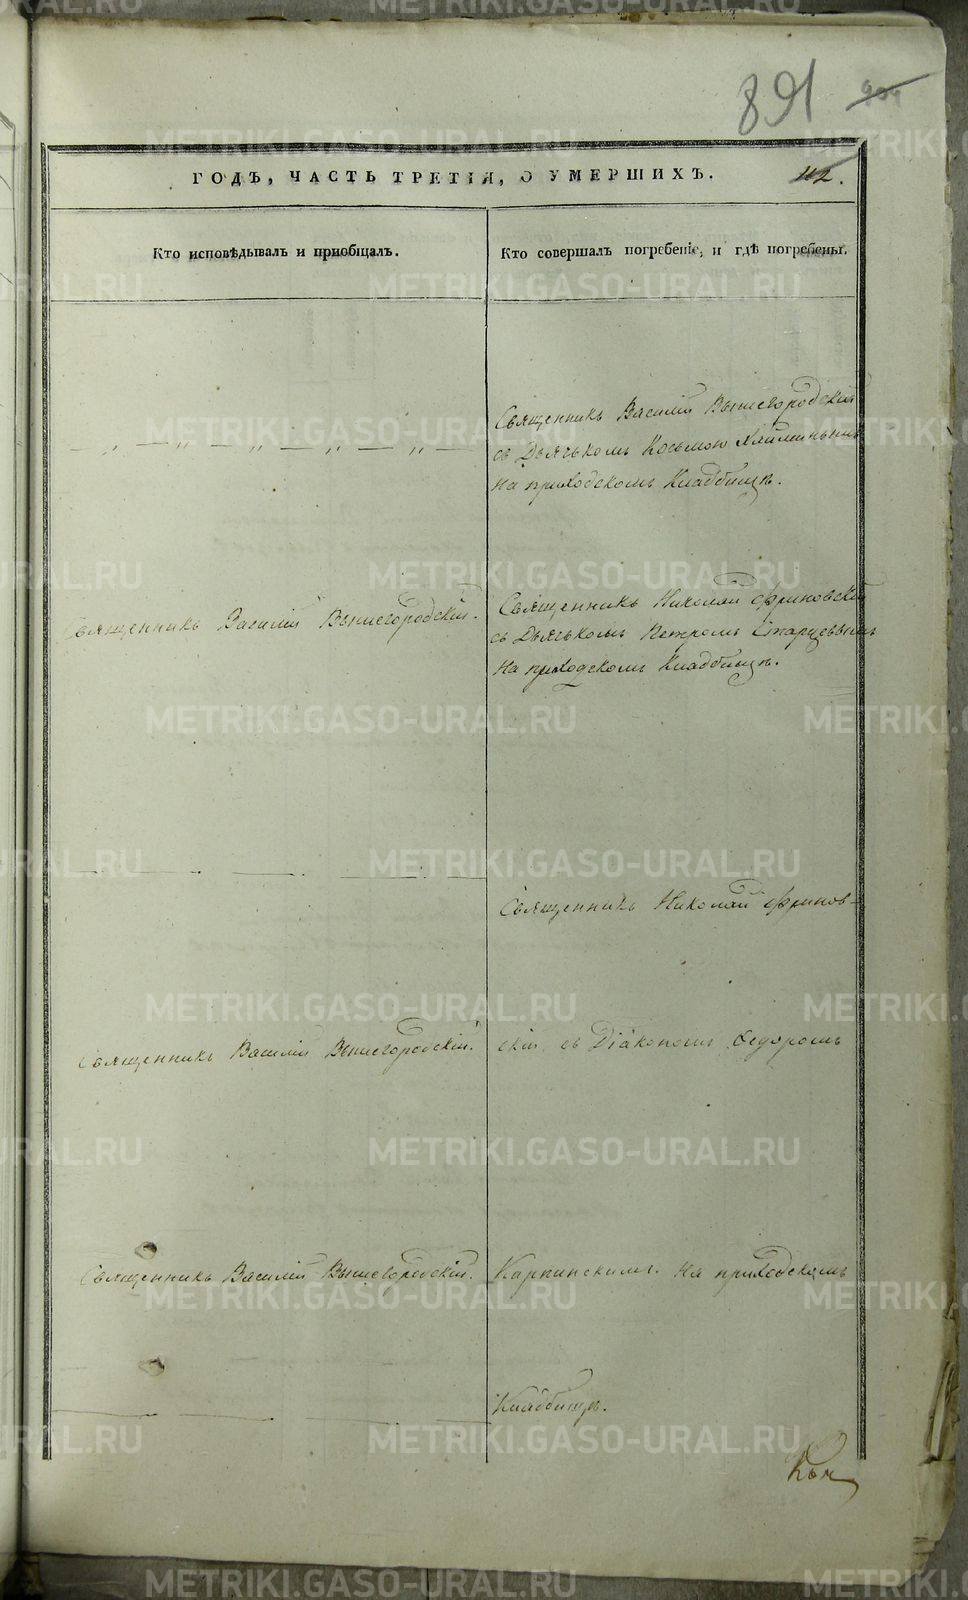 891
ГОДЪ, ЧАСТЬ ТРЕТІЯ, О УМЕРШИХЪ.
112.
Кто исповѣдывалъ и приобщалъ.
Кто совершалъ погребеніе, и гдѣ погребены.
Священникъ Василій Вышегородскій
съ Дьячькомъ Космою
на приходскомъ Кладбищѣ.
Священникъ Василій Вышегородскій.
Священникъ Николай Фриновскій
съ Дьячькомъ Петромъ Старцевымъ
на приходскомъ Кладбищѣ.
Священникъ Николай Фринов-
Священникъ Василій Вышегородскій.
скій съ Діакономъ Ѳедоромъ
Священникъ Василій Вышегородскій.
Карпинскимъ. На приходскомъ
Кладбищѣ.
METRIKI.GASO-URAL.RU